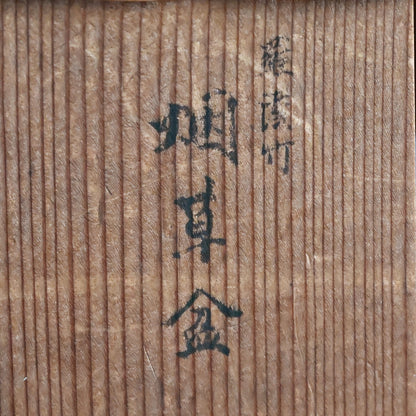 羅漢竹
烟草盆